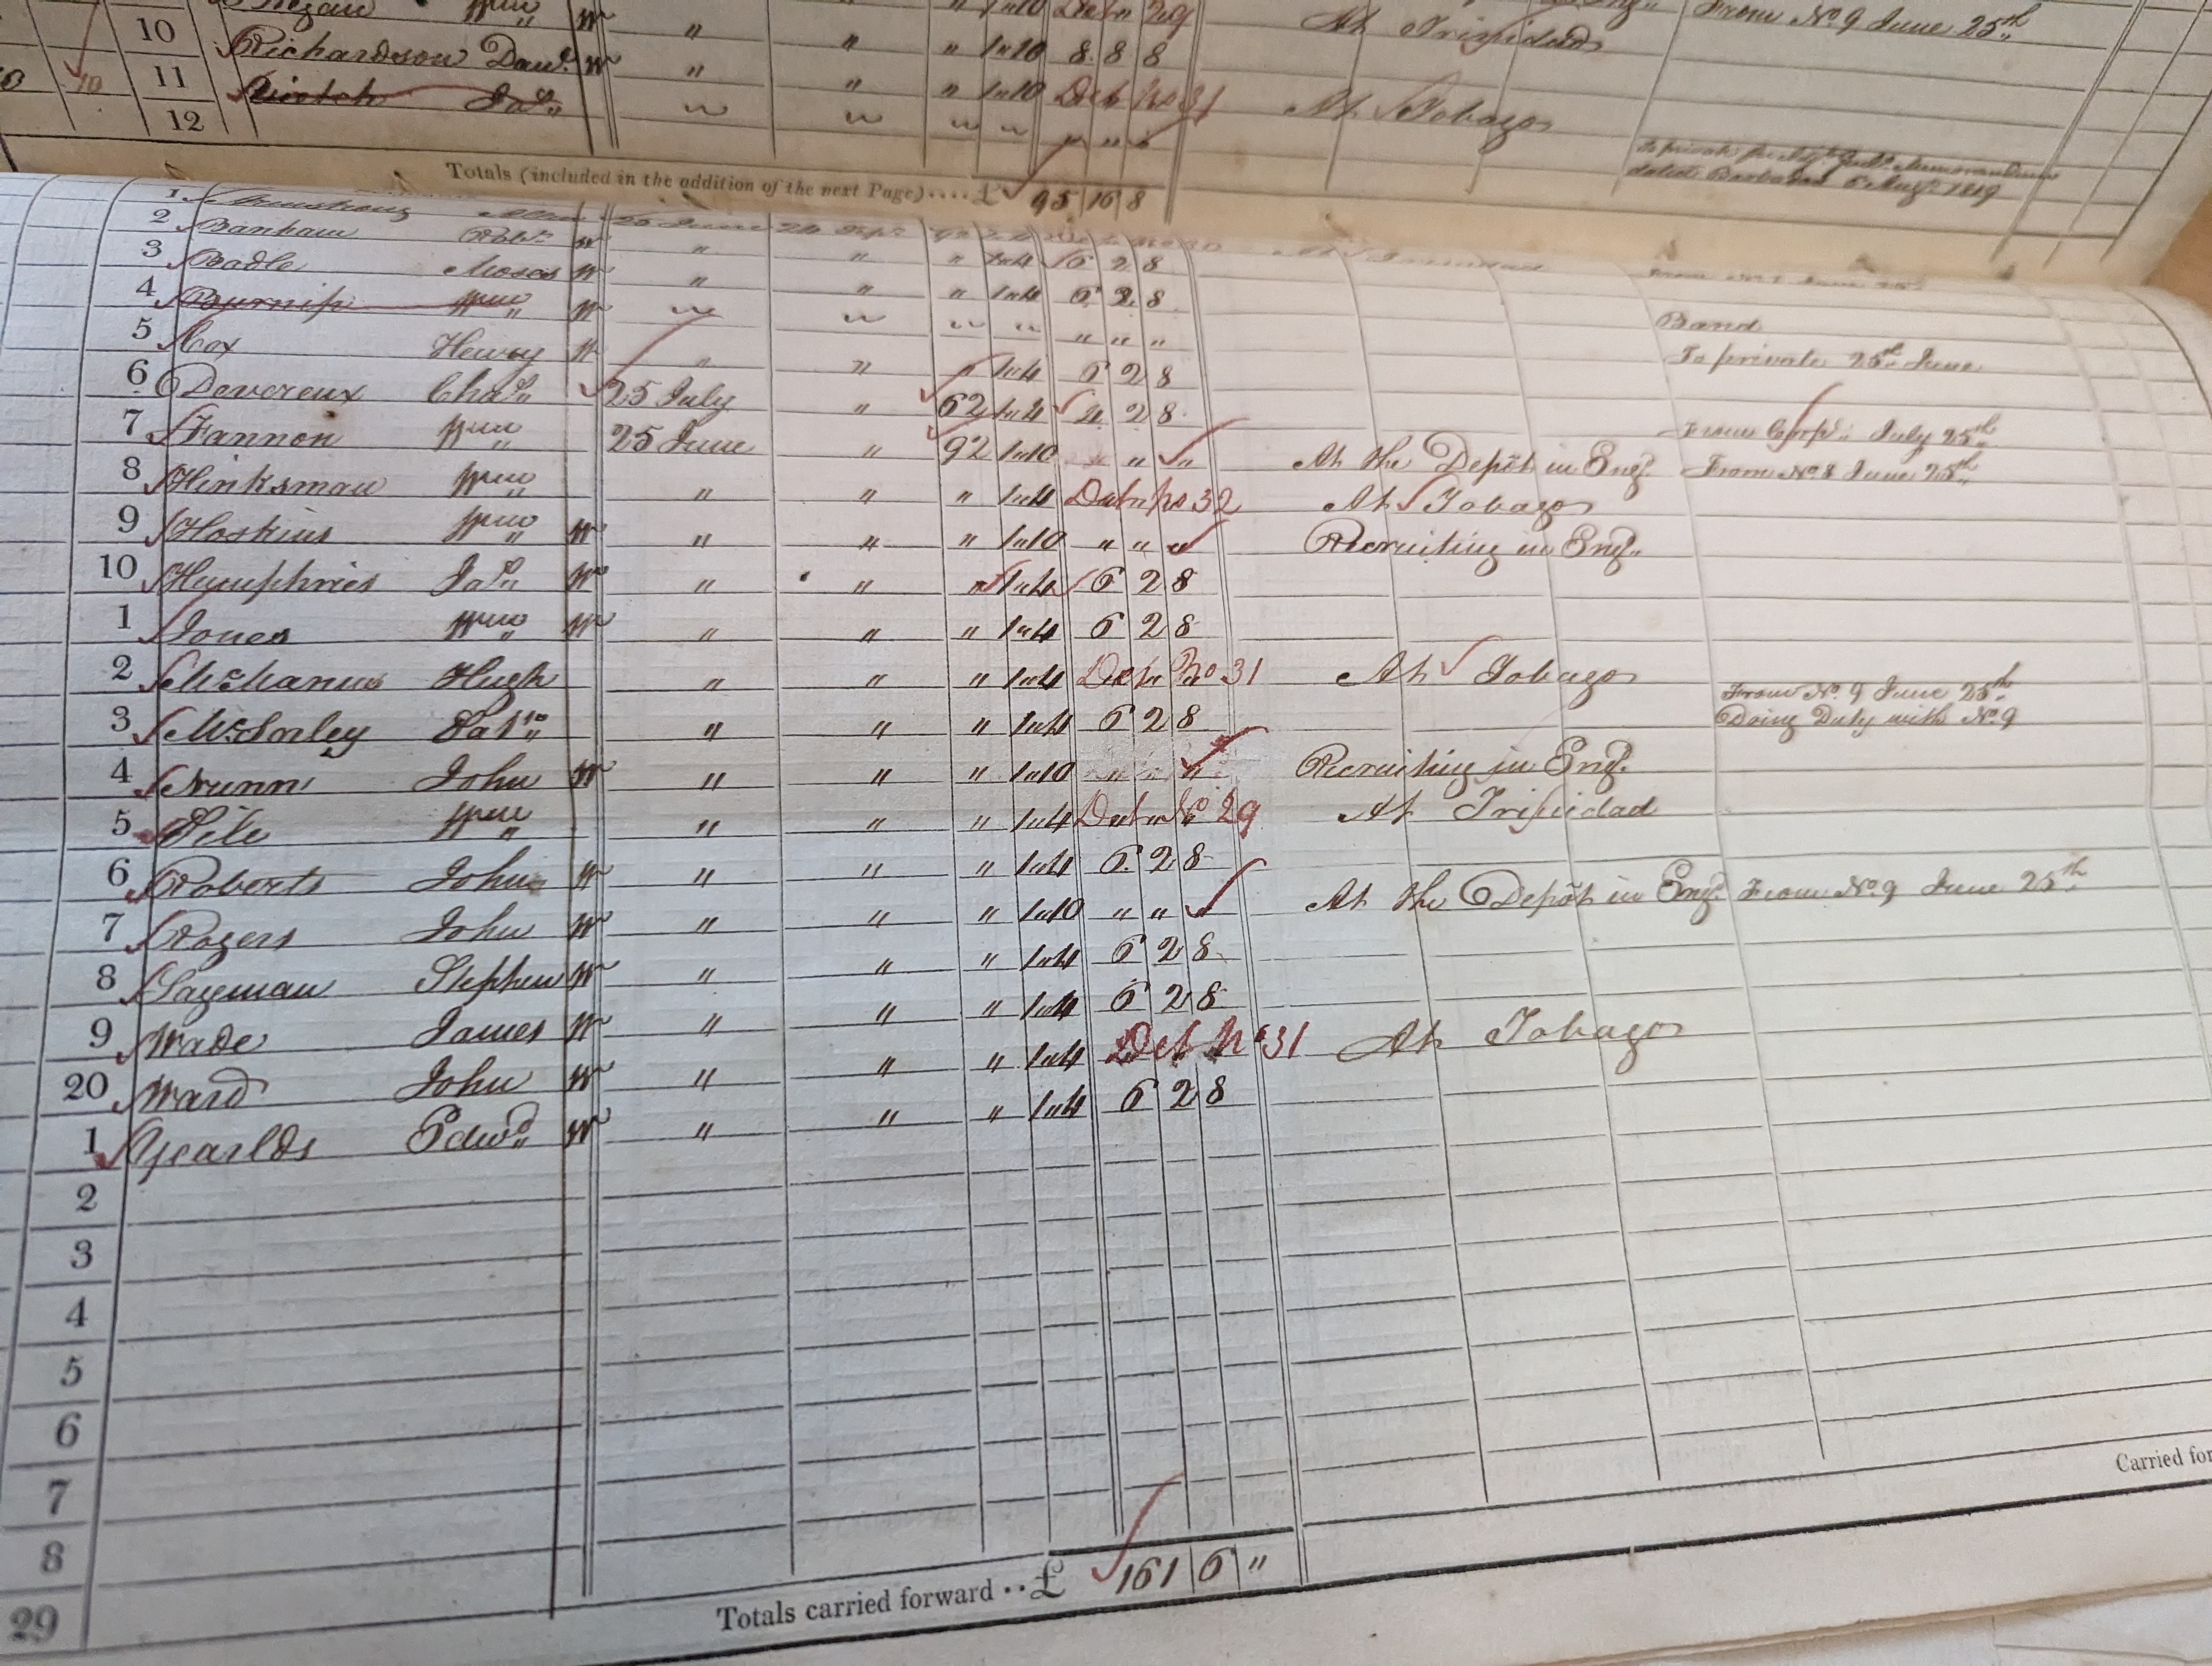 10 Wm W " " " 1"10 Detn 29 At Trinidad From No. 9 June 25th
11 Richardson Danl. W " " " 1"10 8. 8 8
10 12 Jas. " " " 1"10 Det No 31 At Tobago
To private
dated Barbados 1819
Totals (included in the addition of the next Page) .... £ 95 16 8
1 Armstrong Allen 25 June 24 Sept. 92 1"4
2 Banham Robt. W " " " 1"4 6 2 8
3 Badle Moses W " " " 1"4 6 2 8 Band
4 Burnip Wm W " " " " " " " To private 25th June
5 Cox Henry W " " " 1"4 6 2 8
6 Devereux Chas. 25 July " 62 1"4 4 2 8 From Corpl. July 25th
7 Fannon Wm 25 June " 92 1"10 " " At the Depôt in Engd. From No. 8 June 25th
8 Hinksman Wm " " " 1"4 Detn No 32 At Tobago
9 Hoskins Wm W " " " 1"10 " " " Recruiting in Engd.
10 Humphries Jas. W " " " 1"4 6 2 8
1 Jones Wm W " " " 1"4 6 2 8
2 McManus Hugh " " " 1"4 Det. No 31 At Tobago
3 McSorley Patk. " " " 1"4 6 2 8 From No. 9 June 25th
Doing Duty with No. 9
4 Nunn John W " " " 1"10 " " " Recruiting in Engd.
5 Pile Wm " " " 1"4 Detn No 29 At Trinidad
6 Roberts John W " " " 1"4 6. 2 8
7 Rogers John W " " " 1"10 " " " At the Depôt in Engd. From No. 9 June 25th
8 Sageman Stephen W " " " 1"4 6 2 8
9 Wade James W " " " 1"4 6 2 8
20 Ward John W " " " 1"4 Det No 31 At Tobago
1 Yearlds Edwd. W " " " 1"4 6 2 8
2
3
4
5
6
7
8
29
Carried for
Totals carried forward .. £ 161 6 "